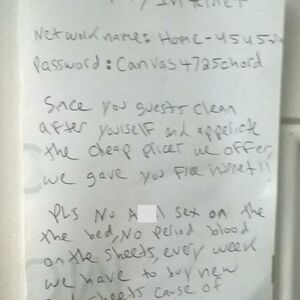 Internet
Network name: Home-4545
Password: Canvas4725chord
Snce you guests clean
after yourself and
the cheap we offer,
we gave you free
Pls No A l sex on the
the bed, No period blood
on the sheets, every week
we have to buy new
sheets cause of